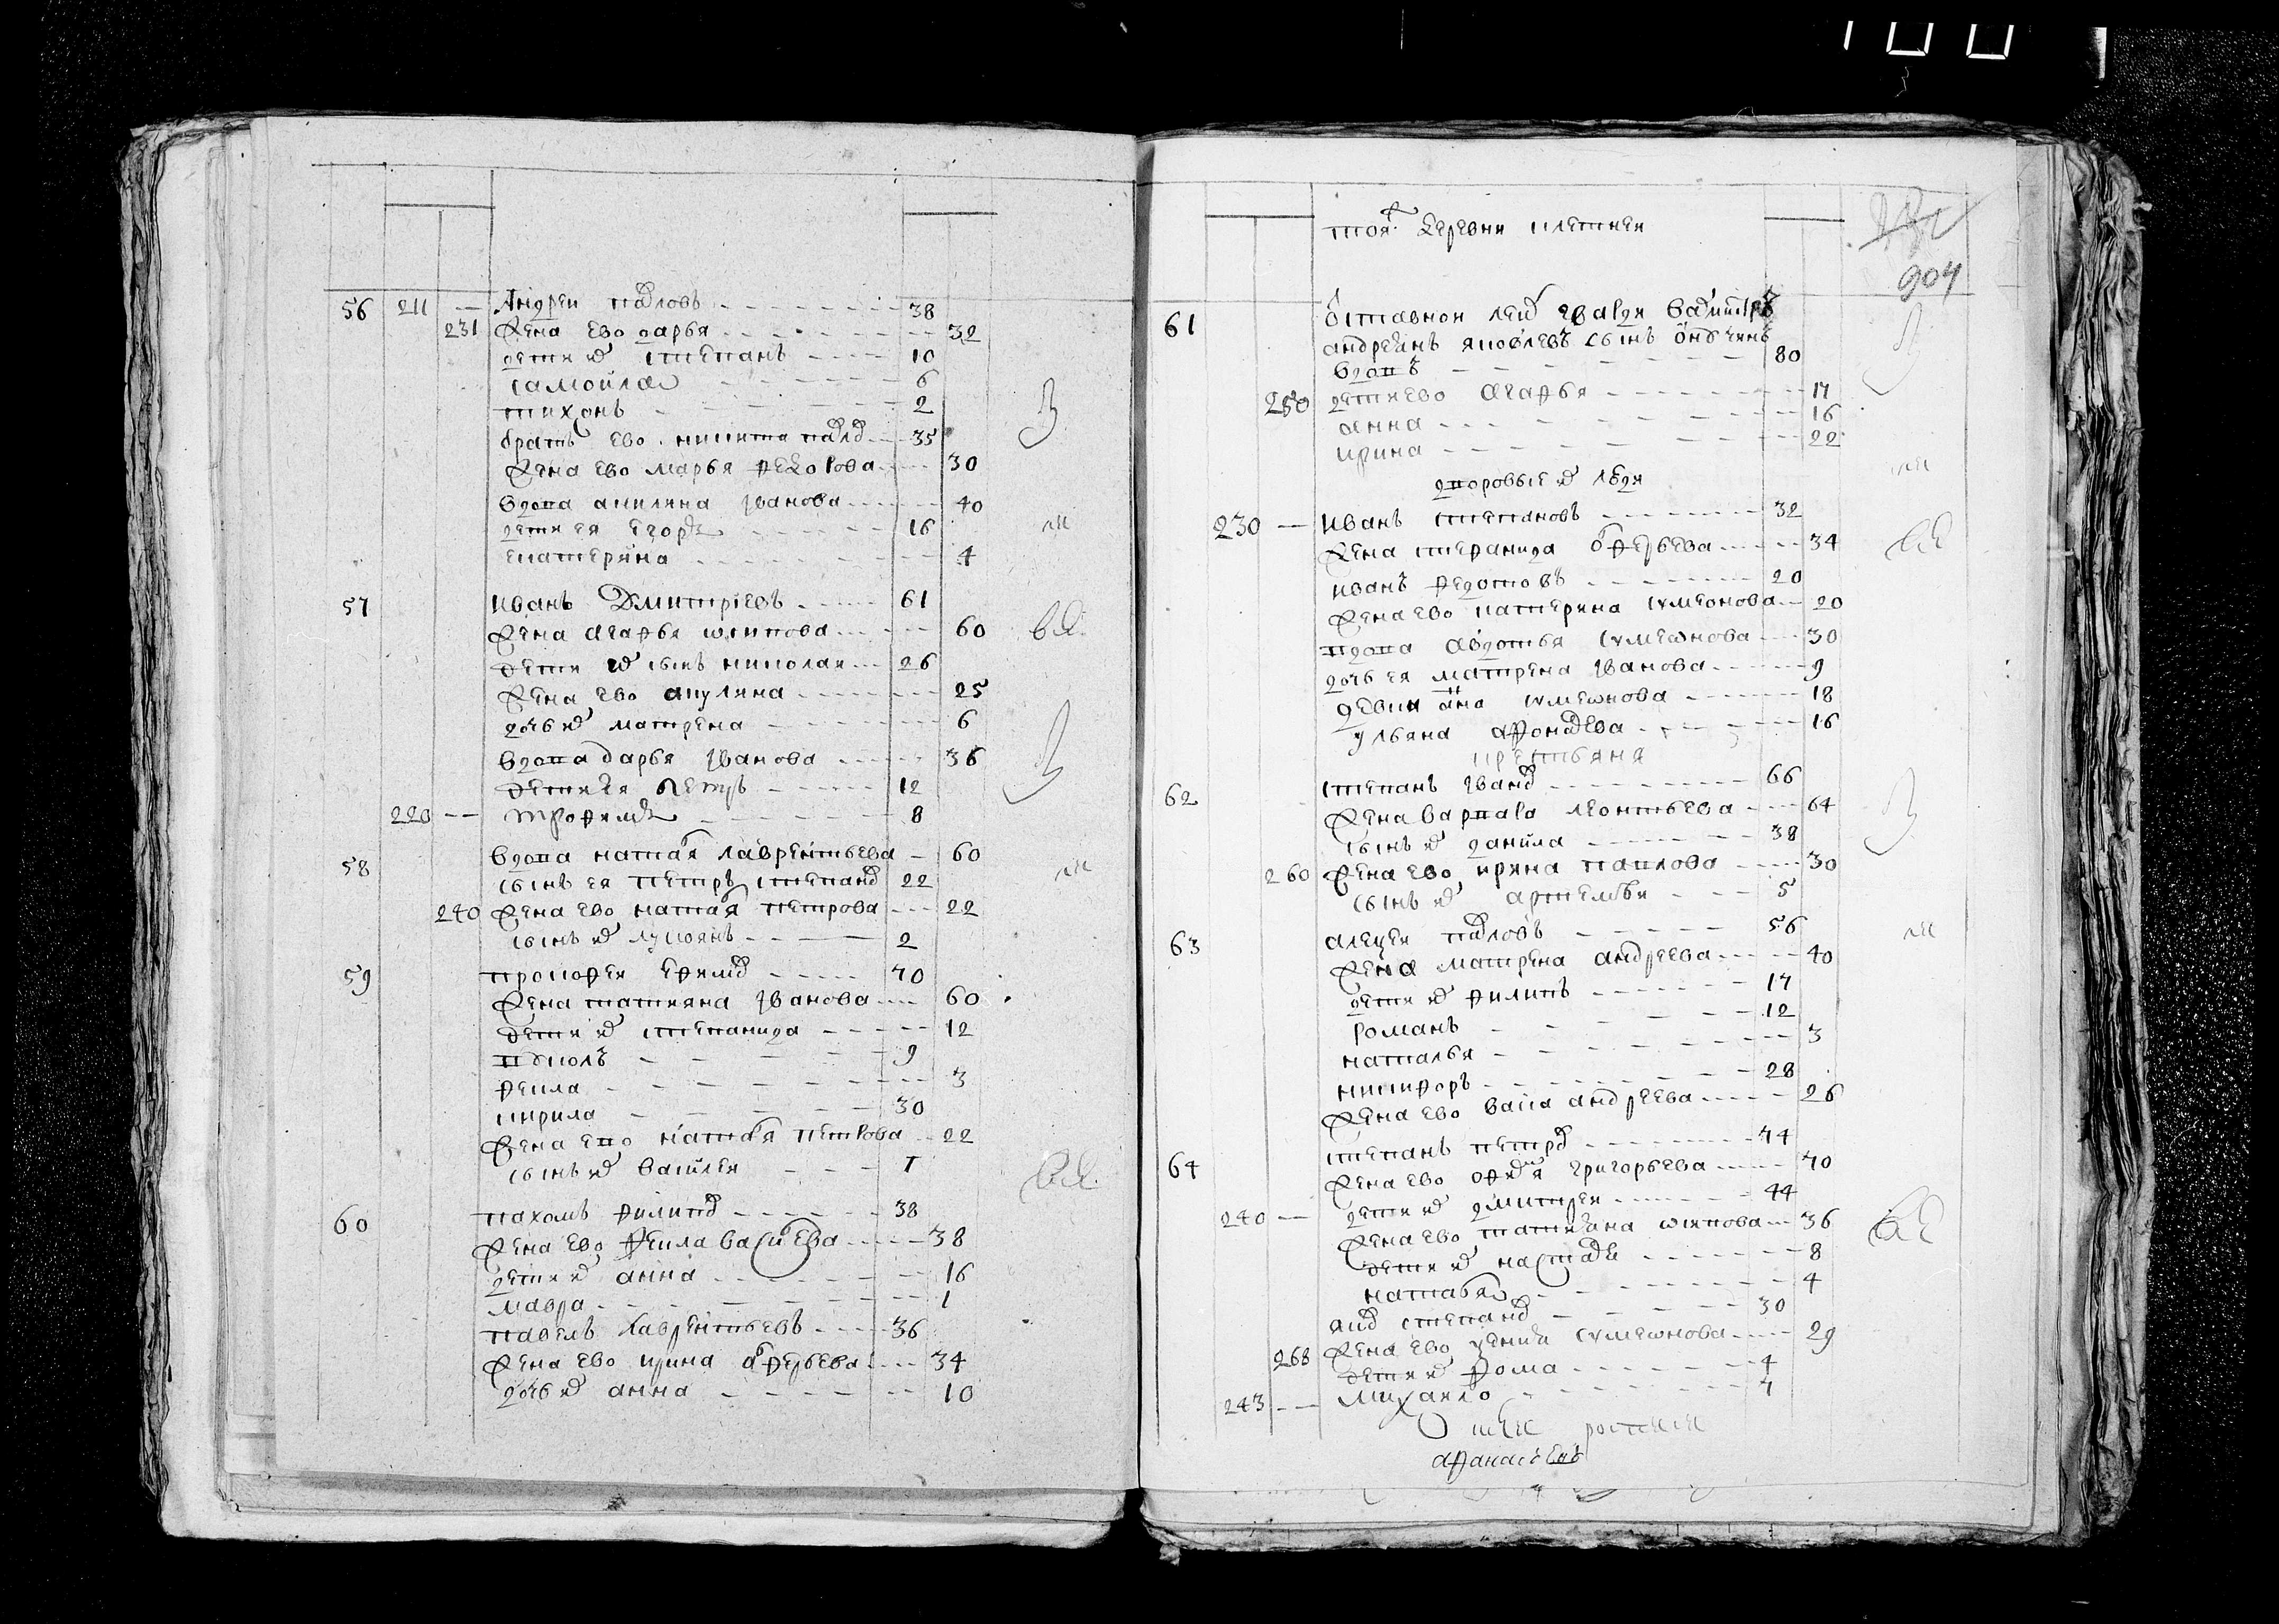 56 211 — Андреи павловъ 38
231 Жена ево дарья 32
дети ев степанъ 10
самоила 6
тихонъ 2
братъ ево никита павлов 35
Жена ево марья федорова 30
вдова акилина иванова 40
дети ея егоръ 16
екатерина 4
57 иванъ Дмитриевъ 61
Жена агафья иосипова 60
дети ев сынъ николаи 26
Жена ево акулина 25
дочь ев матрена 6
вдова дарья иванова 36
дети ея петръ 12
220 — трофимъ 8
58 вдова наталья лаврентьева 60
сынъ ея петръ степанов 22
240 Жена ево наталья петрова 22
сынъ ев лукоянъ 2
59 прокофеи ефимов 70
Жена татияна иванова 60
дети ев степанида 12
9
фекла 3
кирила 30
Жена ево наталья петрова 22
сынъ ев василеи 1
60 пахомъ филипов 38
Жена ево фекла васильева 38
дети ев анна 16
мавра 1
павелъ лаврентьевъ 36
Жена ево ирина арефьева 34
дочь ев анна 10
тоя деревни
904
61 отставнои леиб гвардии
андреянъ яковлевъ сынъ
вдовъ 80
250 дети ево агафья 17
анна 16
ирина 22
дворовые ев люди
230 — иванъ степановъ 32
Жена степанида арефьева 34
иванъ федотовъ 20
Жена ево катерина симеонова 20
вдова авдотья симеонова 30
дочь ея матрена иванова 9
девки анна симеонова 18
ульяна 16
крестьяня
62 степанъ иванов 66
Жена варвара леонтьева 64
сынъ ев данила 38
260 Жена ево ирина павлова 30
сынъ ев артемеи 5
63 алексеи павловъ 56
Жена матрена андреева 40
дети ев филипъ 17
романъ 12
наталья 3
никифоръ 28
Жена ево васса андреева 26
64 степанъ петров 74
Жена ево офимья григорьева 70
240 — дети ев дмитреи 44
Жена ево татияна иосипова 36
дети ев настасья 8
наталья 4
яков степанов 30
268 Жена ево ксения симеонова 29
дети ев фома 4
243 — михаило 7
афанасьевъ